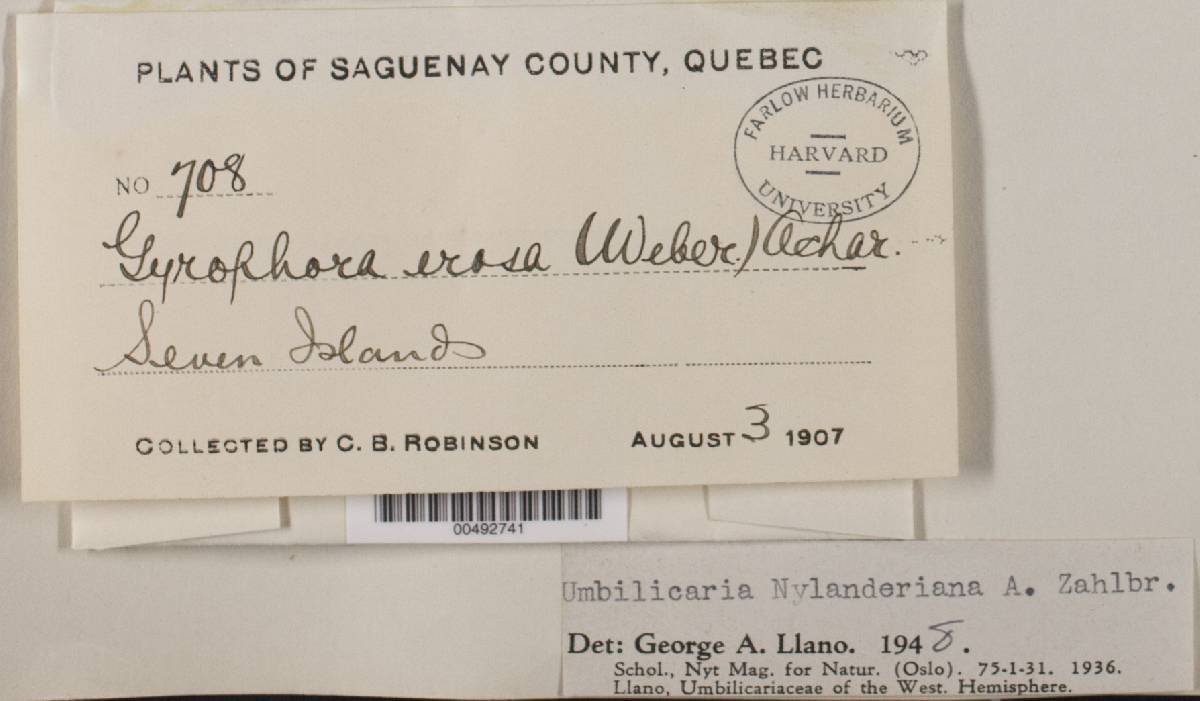 PLANTS OF SAGUENAY COUNTY, QUEBEC
FARLOW HERBARIUM
HARVARD
UNIVERSITY
NO 708
Gyrophora erosa (Weber.) Achar.
Seven Islands
COLLECTED BY C. B. ROBINSON AUGUST 3 1907
00492741
Umbilicaria Nylanderiana A. Zahlbr.
Det: George A. Llano. 1948.
Schol., Nyt Mag. for Natur. (Oslo). 75-1-31. 1936.
Llano, Umbilicariaceae of the West. Hemisphere.